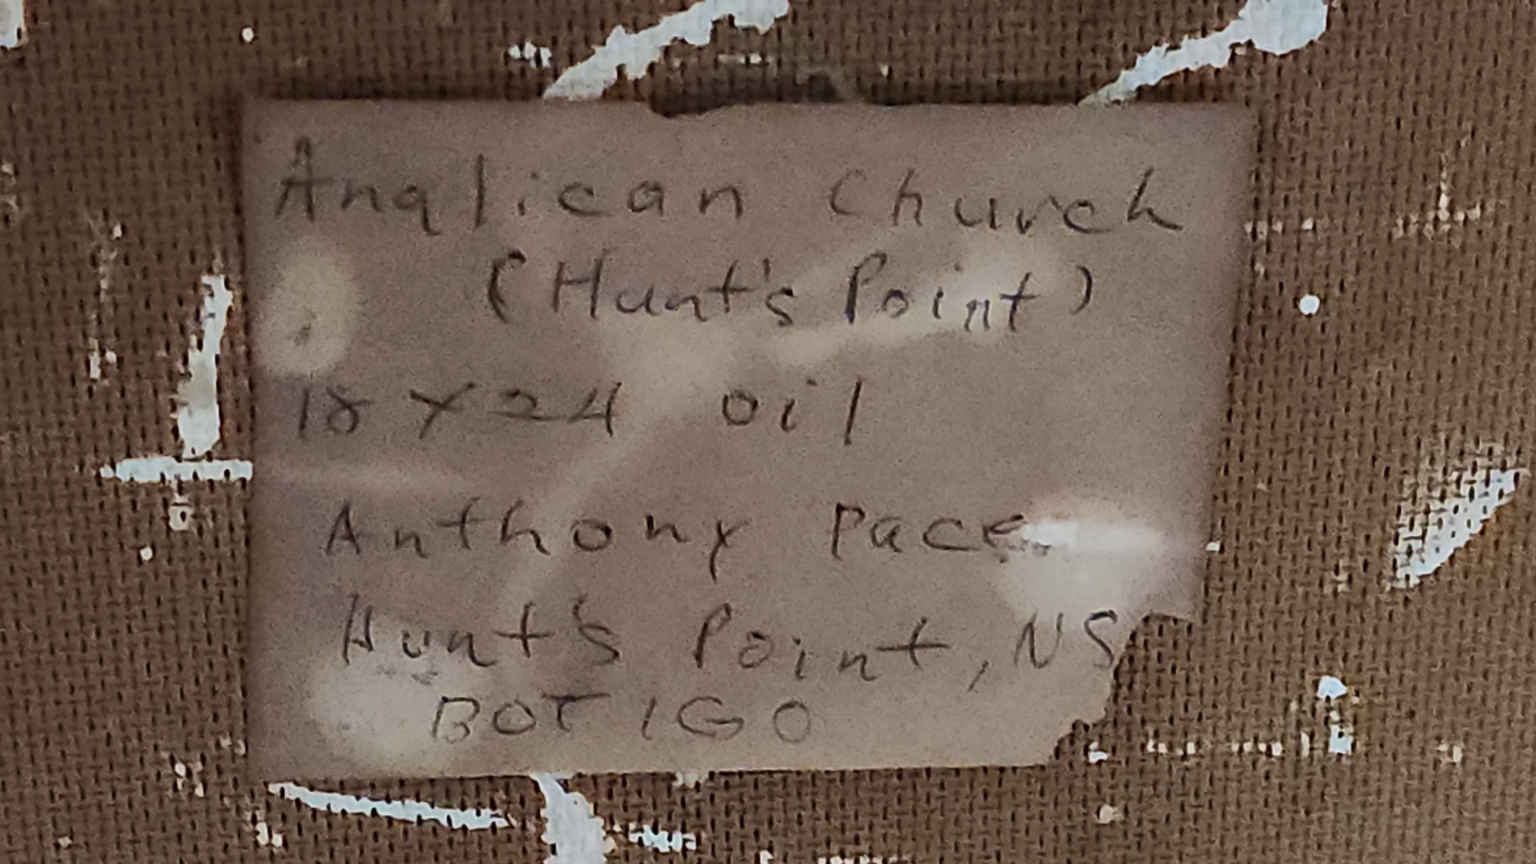 Anglican Church
(Hunt's Point)
18 X 24 oil
Anthony Pace
Hunt's Point, NS
B0T 1G0